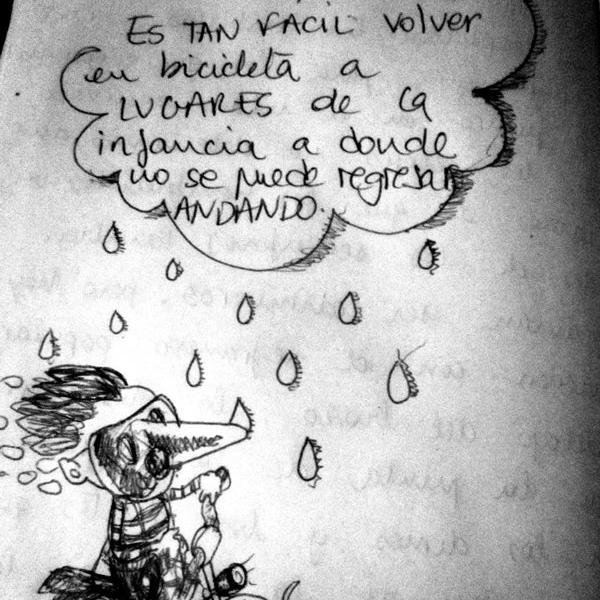 ES TAN FACIL volver
en bicicleta a
LUGARES de la
infancia a donde
no se puede regresar
ANDANDO.